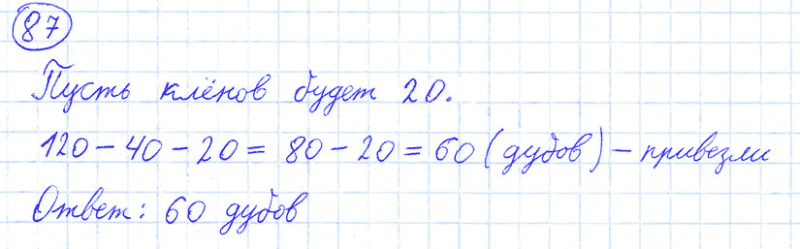 87
Пусть клёнов будет 20.
120 - 40 - 20 = 80 - 20 = 60 (дубов) - привезли
Ответ: 60 дубов